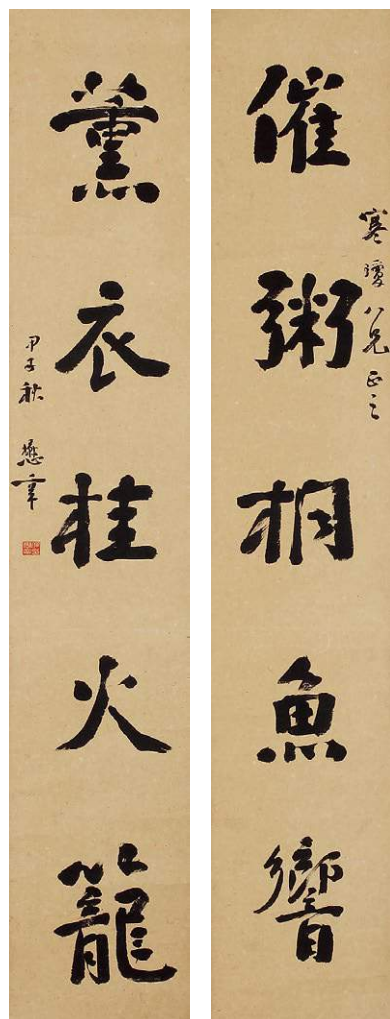 催粥桐魚響
寒瓊八兄正之
薰衣桂火籠
甲子秋 懋章